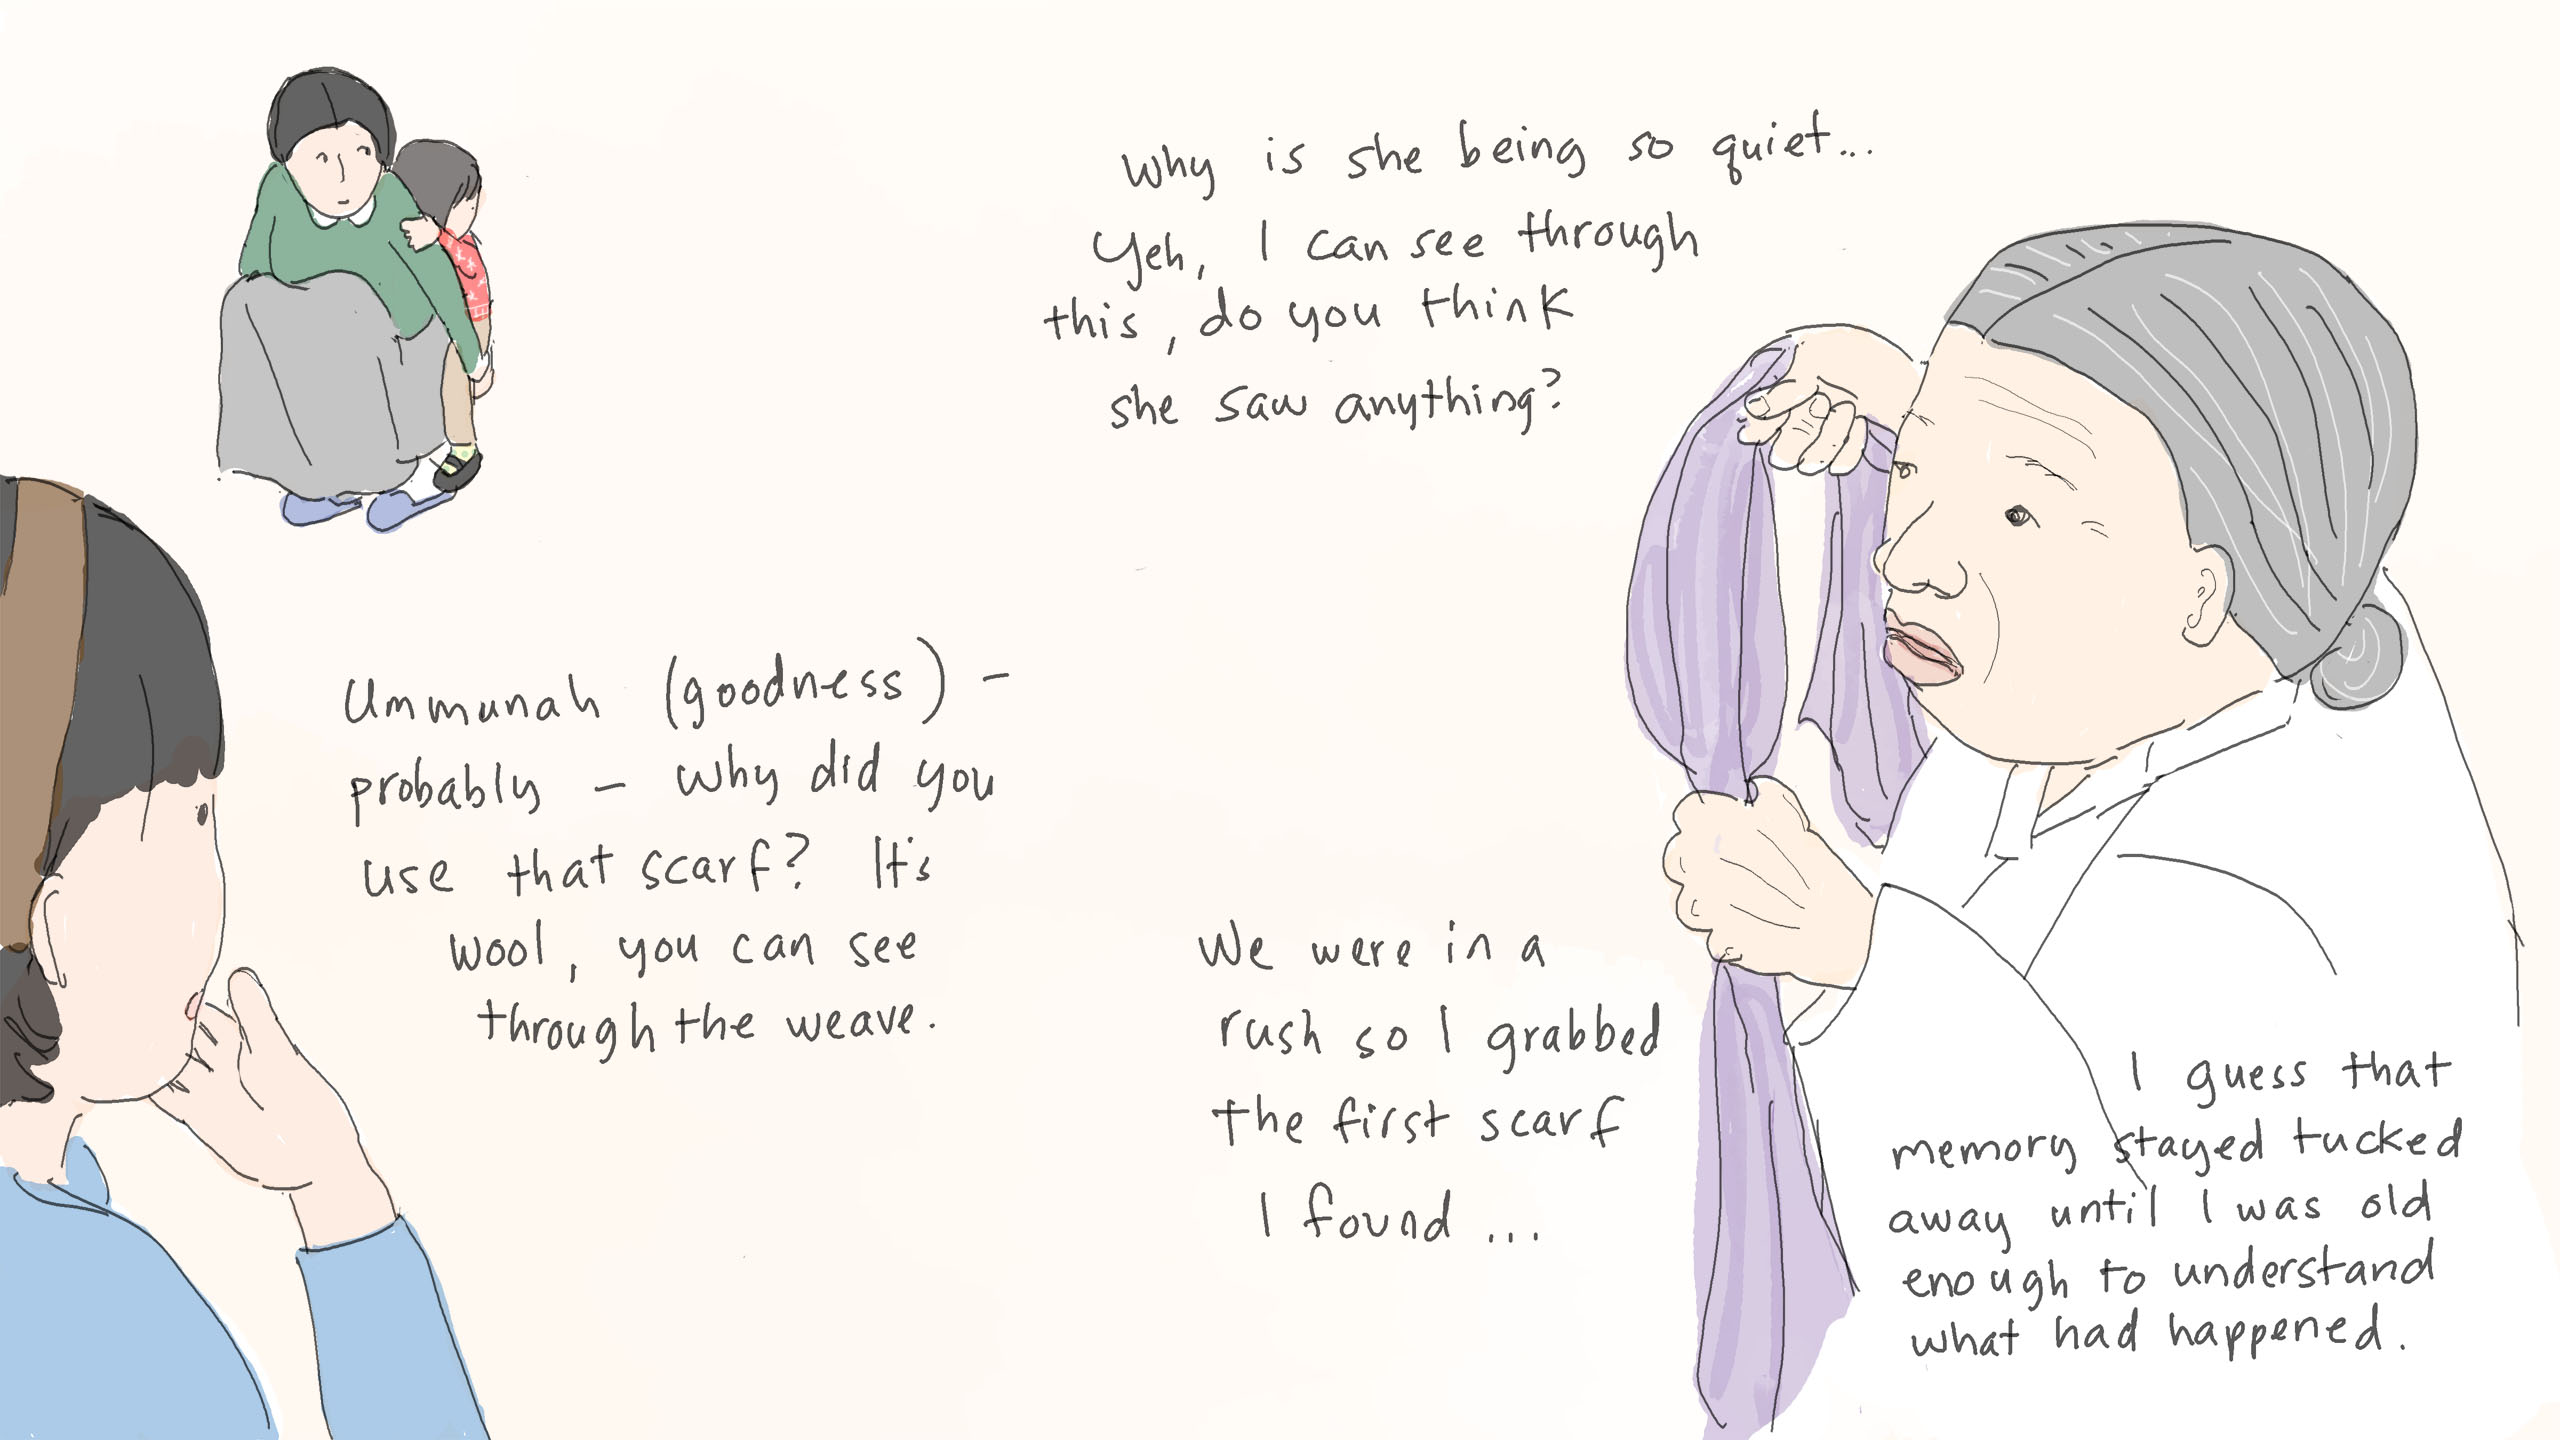 Why is she being so quiet...
Yeh, I can see through
this, do you think
she saw anything?
Ummunah (goodness) -
probably - why did you
use that scarf? It's
wool, you can see
through the weave.
We were in a
rush so I grabbed
the first scarf
I found ...
I guess that
memory stayed tucked
away until I was old
enough to understand
what had happened.